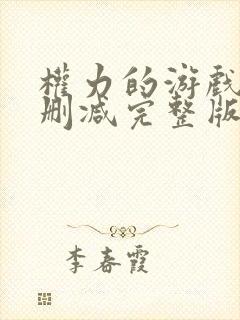 權力的游戲
刪減完整版
李春霞